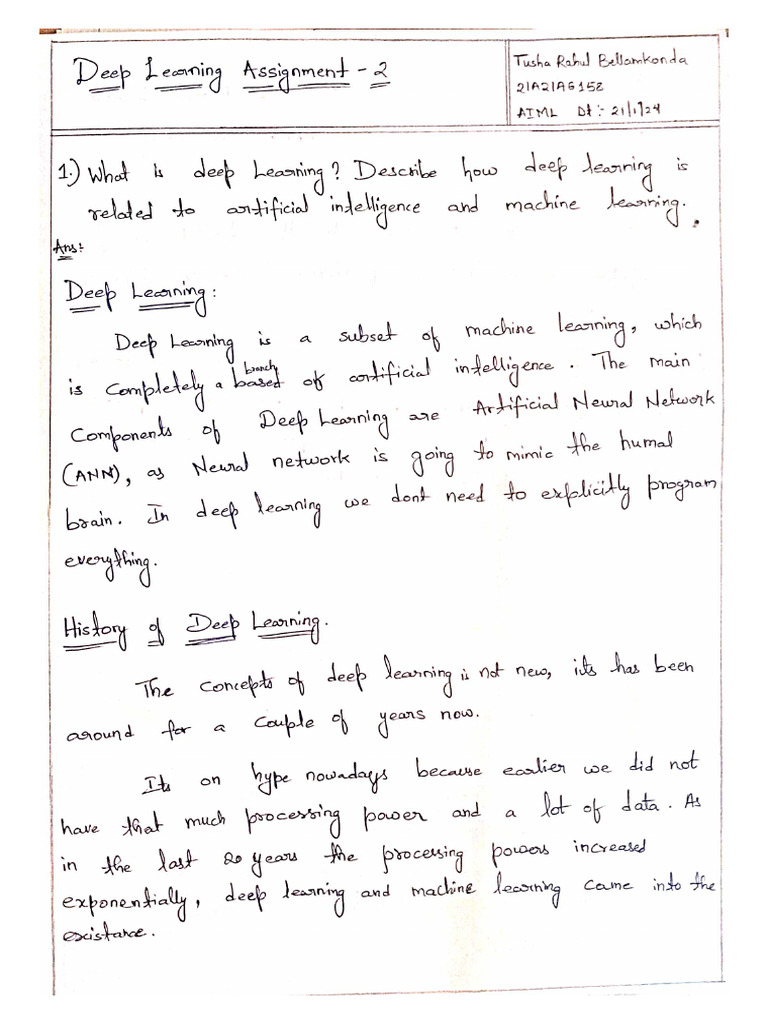 Deep Learning Assignment - 2
Tusha Rahul Bellamkonda
21A21A6152
AIML Dt :- 21/1/24
1.) What is deep Learning? Describe how deep learning is
related to artificial intelligence and machine learning.
Ans:
Deep Learning:
Deep Learning is a subset of machine learning, which
branch
is completely a based of artificial intelligence. The main
Components of Deep Learning are Artificial Neural Network
(ANN), as Neural network is going to mimic the humal
brain. In deep learning we dont need to explicitly program
everything.
History of Deep Learning.
The concepts of deep learning is not new, its has been
around for a couple of years now.
Its on hype nowadays because earlier we did not
have that much processing power and a lot of data. As
in the last 20 years the processing powers increased
exponentially, deep learning and machine learning came into the
existance.